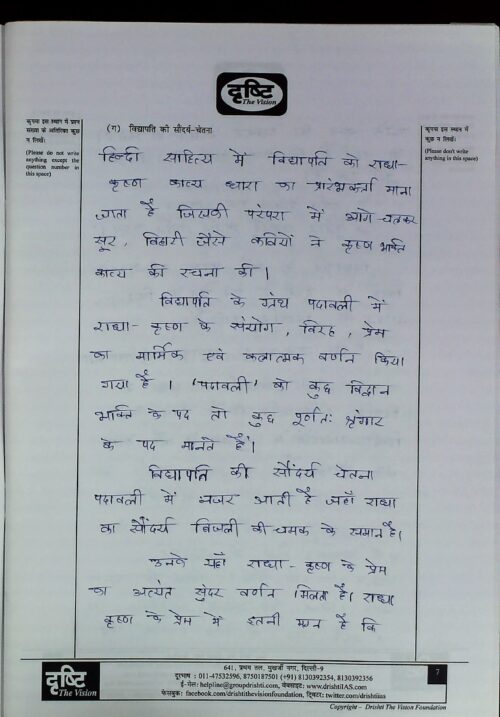 दृष्टि
The Vision
कृपया इस स्थान में प्रश्न
संख्या के अतिरिक्त कुछ
न लिखें।
(Please do not write
anything except the
question number in
this space)
(ग) विद्यापति की सौंदर्य-चेतना
कृपया इस स्थान में
कुछ न लिखें।
(Please don't write
anything in this space)
हिन्दी साहित्य में विद्यापति को राधा-
कृष्ण काव्य धारा का प्रारंभकर्ता माना
जाता है जिसकी परंपरा में आगे चलकर
सूर, बिहारी जैसे कवियों ने कृष्ण भक्ति
काव्य की रचना की।
विद्यापति के ग्रंथ पदावली में
राधा-कृष्ण के संयोग, विरह, प्रेम
का मार्मिक एवं कलात्मक वर्णन किया
गया है। 'पदावली' को कुछ विद्वान
भक्ति के पद तो कुछ पूर्णतः श्रृंगार
के पद मानते हैं।
विद्यापति की सौंदर्य चेतना
पदावली में नजर आती है जहाँ राधा
का सौंदर्य बिजली की चमक के समान है।
उनके यहाँ राधा-कृष्ण के प्रेम
का अत्यंत सुंदर वर्णन मिलता है। राधा
कृष्ण के प्रेम में इतनी मग्न है कि
दृष्टि
The Vision
641, प्रथम तल, मुखर्जी नगर, दिल्ली-9
दूरभाष : 011-47532596, 8750187501 (+91) 8130392354, 8130392356
ई-मेल: helpline@groupdrishti.com, वेबसाइट: www.drishtiIAS.com
फेसबुक: facebook.com/drishtithevisionfoundation, ट्विटर: twitter.com/drishtiias
7
Copyright – Drishti The Vision Foundation